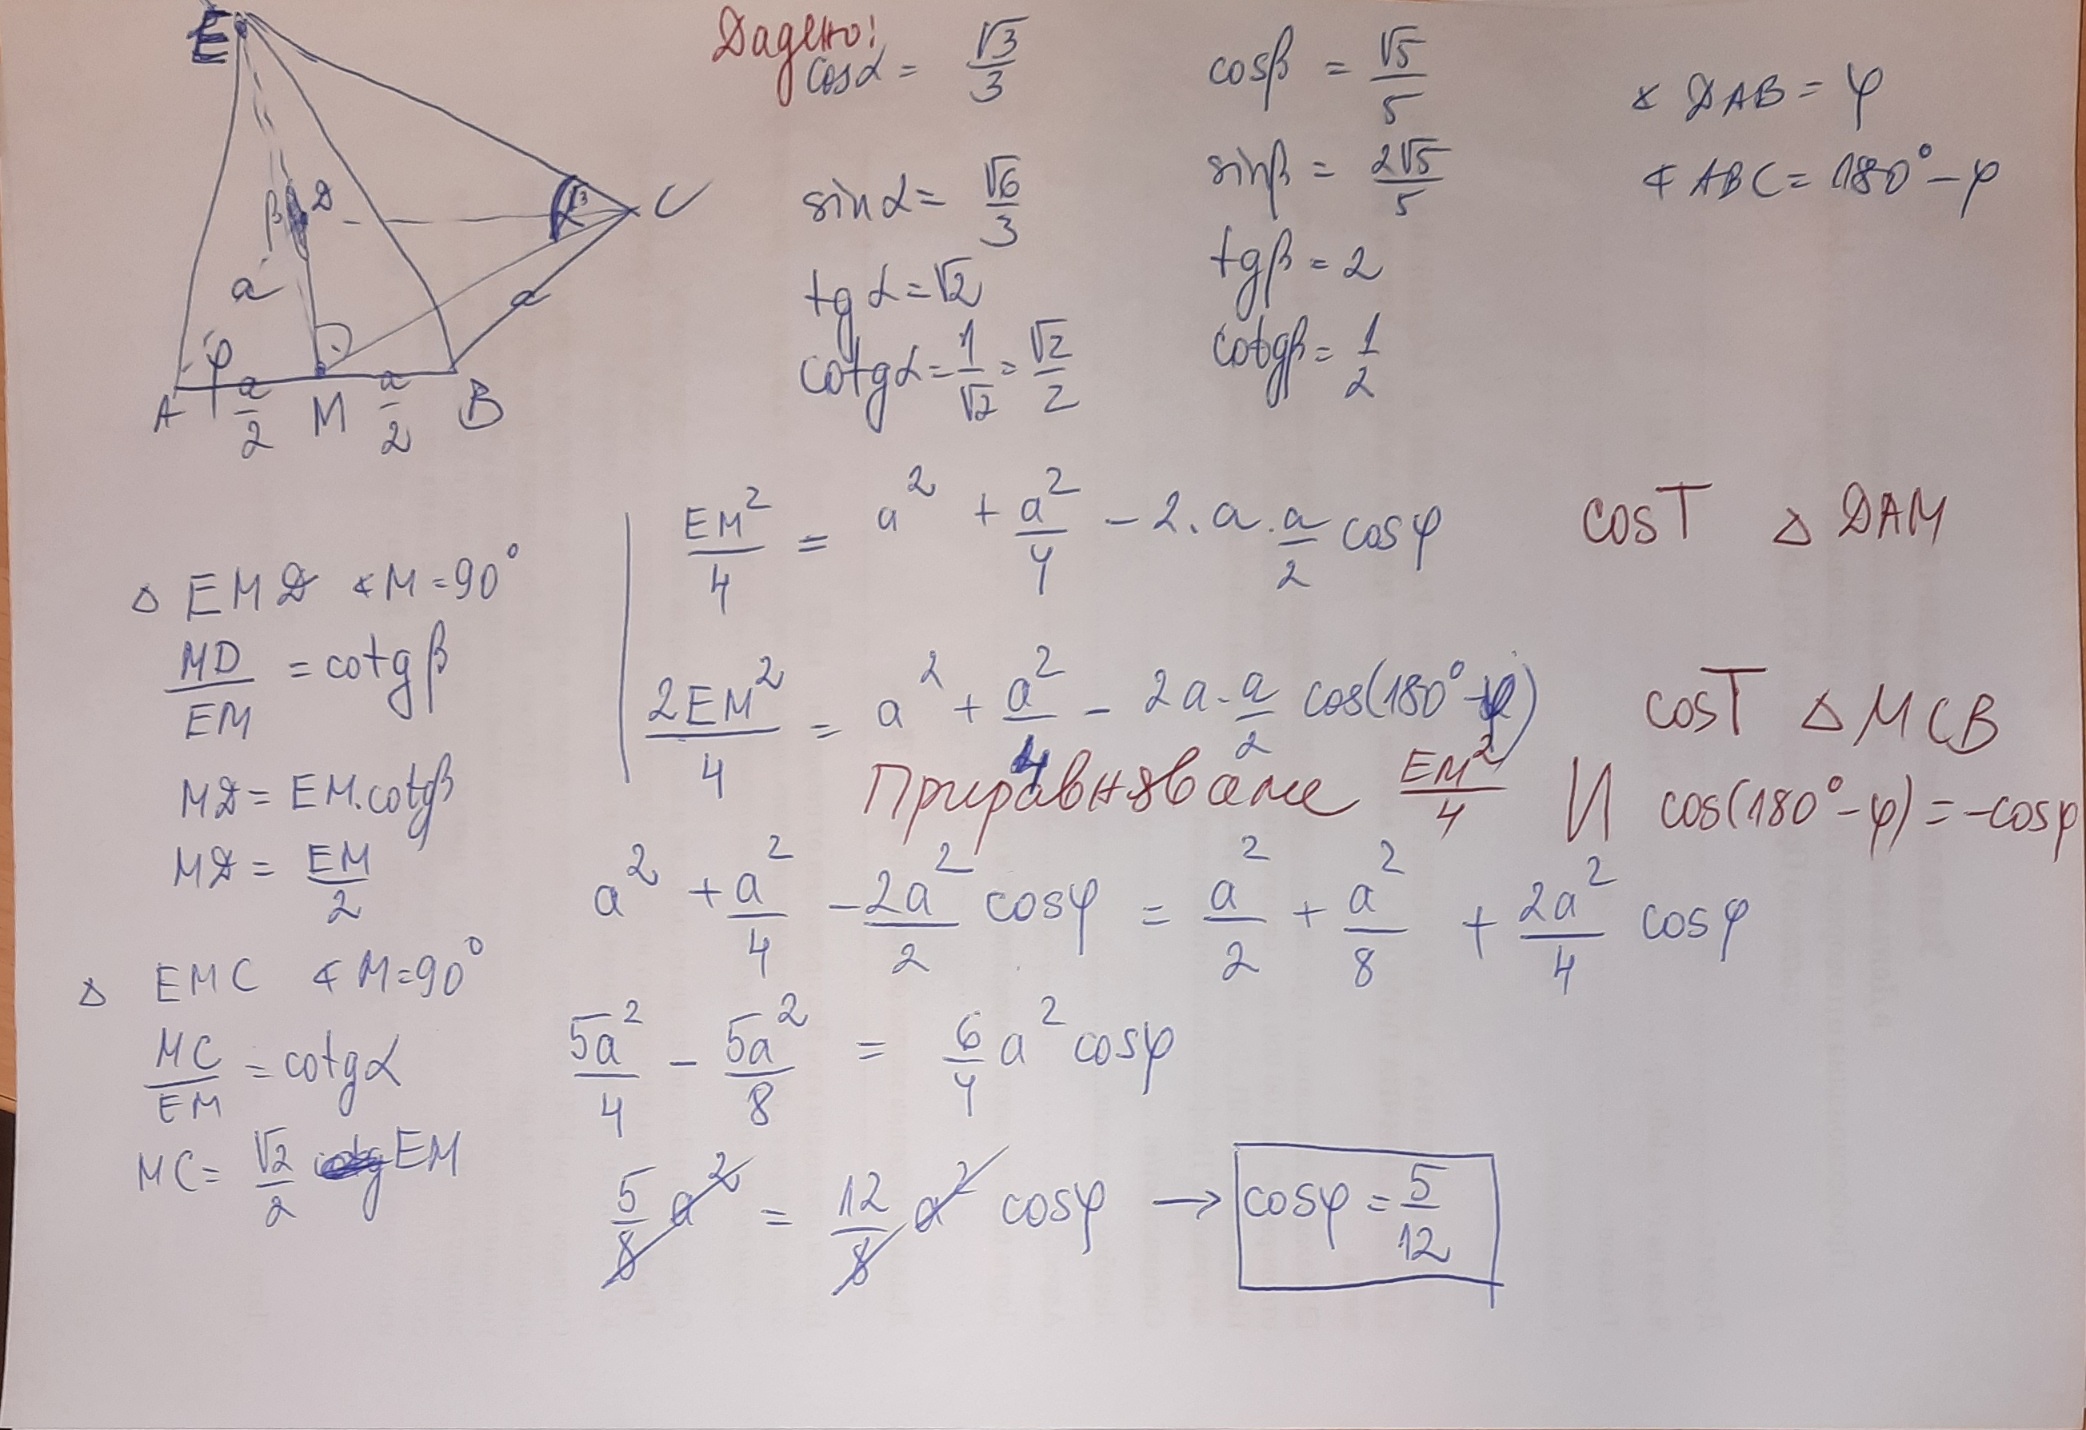 E
β D
α³
C
a
a
φ
A a/2 M a/2 B
Дадено:
cosα = √3/3
sinα = √6/3
tgα = √2
cotgα = 1/√2 = √2/2
cosβ = √5/5
sinβ = 2√5/5
tgβ = 2
cotgβ = 1/2
∢ DAB = φ
∢ ABC = 180° - φ
△ EMD ∢ M = 90°
MD/EM = cotgβ
MD = EM.cotgβ
MD = EM/2
△ EMC ∢ M = 90°
MC/EM = cotgα
MC = √2/2 EM
EM²/4 = a² + a²/4 - 2.a.a/2 cosφ cosT △ DAM
2EM²/4 = a² + a²/4 - 2a.a/2 cos(180° - φ) cosT △ MCB
Приравняваме EM²/4 И cos(180° - φ) = -cosφ
a² + a²/4 - 2a²/2 cosφ = a²/2 + a²/8 + 2a²/4 cosφ
5a²/4 - 5a²/8 = 6/4 a² cosφ
5/8 a² = 12/8 a² cosφ → cosφ = 5/12